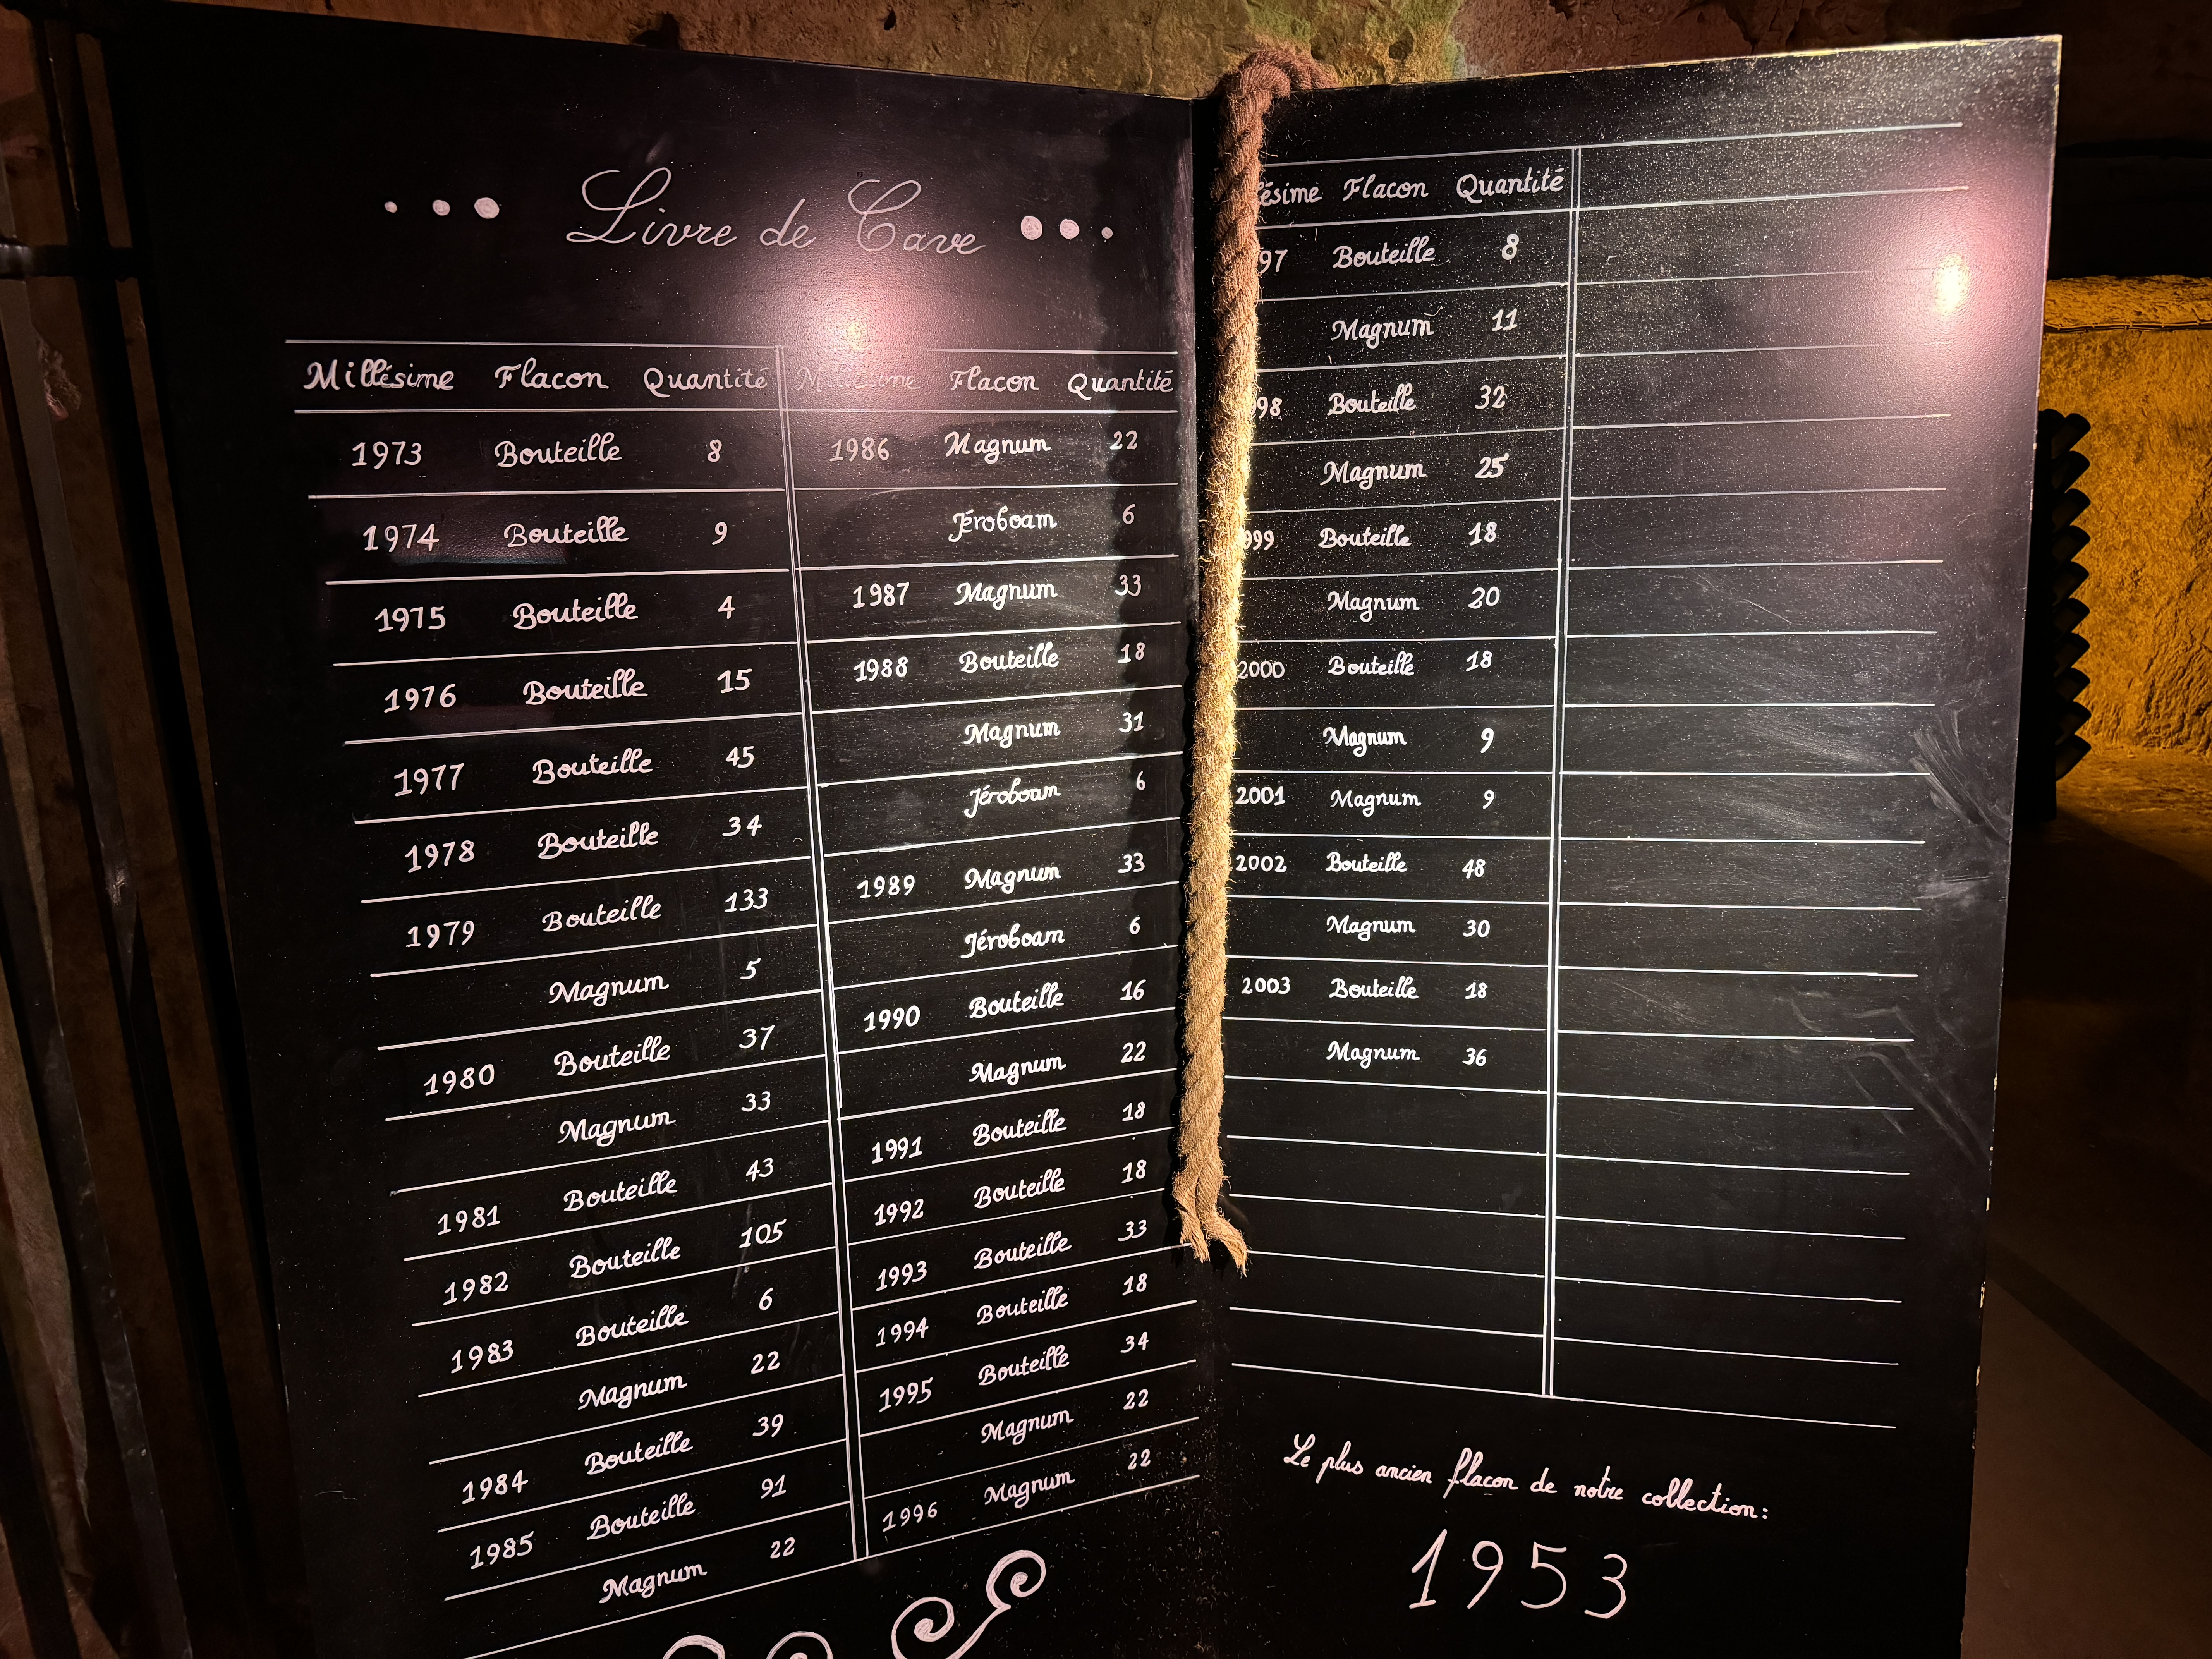 Livre de Cave
Millésime Flacon Quantité
1973 Bouteille 8
1974 Bouteille 9
1975 Bouteille 4
1976 Bouteille 15
1977 Bouteille 45
1978 Bouteille 34
1979 Bouteille 133
Magnum 5
1980 Bouteille 37
Magnum 33
1981 Bouteille 43
1982 Bouteille 105
1983 Bouteille 6
Magnum 22
1984 Bouteille 39
1985 Bouteille 91
Magnum 22
Millésime Flacon Quantité
1986 Magnum 22
Jéroboam 6
1987 Magnum 33
1988 Bouteille 18
Magnum 31
Jéroboam 6
1989 Magnum 33
Jéroboam 6
1990 Bouteille 16
Magnum 22
1991 Bouteille 18
1992 Bouteille 18
1993 Bouteille 33
1994 Bouteille 18
1995 Bouteille 34
Magnum 22
1996 Magnum 22
ésime Flacon Quantité
97 Bouteille 8
Magnum 11
98 Bouteille 32
Magnum 25
999 Bouteille 18
Magnum 20
2000 Bouteille 18
Magnum 9
2001 Magnum 9
2002 Bouteille 48
Magnum 30
2003 Bouteille 18
Magnum 36
Le plus ancien flacon de notre collection:
1953